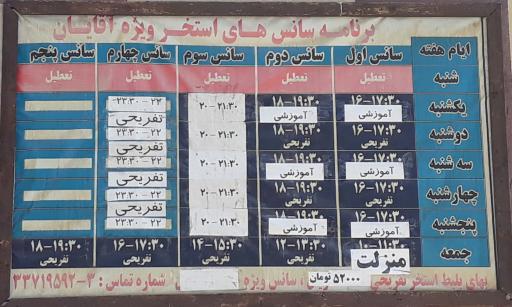 برنامه سانس های استخر ویژه آقایان
ایام هفته سانس اول سانس دوم سانس سوم سانس چهارم سانس پنجم
شنبه تعطیل تعطیل تعطیل تعطیل تعطیل
یکشنبه ۱۶-۱۷:۳۰ آموزشی ۱۸-۱۹:۳۰ آموزشی ۲۰-۲۱:۳۰ ۲۲-۲۳:۳۰ تفریحی
دوشنبه ۱۶-۱۷:۳۰ تفریحی ۱۸-۱۹:۳۰ تفریحی ۲۰-۲۱:۳۰ ۲۲-۲۳:۳۰ تفریحی
سه شنبه ۱۶-۱۷:۳۰ آموزشی ۱۸-۱۹:۳۰ آموزشی ۲۰-۲۱:۳۰ ۲۲-۲۳:۳۰ تفریحی
چهارشنبه ۱۶-۱۷:۳۰ تفریحی ۱۸-۱۹:۳۰ تفریحی ۲۰-۲۱:۳۰ تفریحی
پنجشنبه ۱۶-۱۷:۳۰ آموزشی ۱۸-۱۹:۳۰ آموزشی ۲۰-۲۱:۳۰ ۲۲-۲۳:۳۰
جمعه ۱۰-۱۱:۳۰ منزلت ۱۲-۱۳:۳۰ تفریحی ۱۴-۱۵:۳۰ تفریحی ۱۶-۱۷:۳۰ تفریحی ۱۸-۱۹:۳۰ تفریحی
بهای بلیط استخر تفریحی ۵۲۰۰۰ تومان ، سانس ویژه شماره تماس : ۳-۳۳۷۱۹۵۹۲